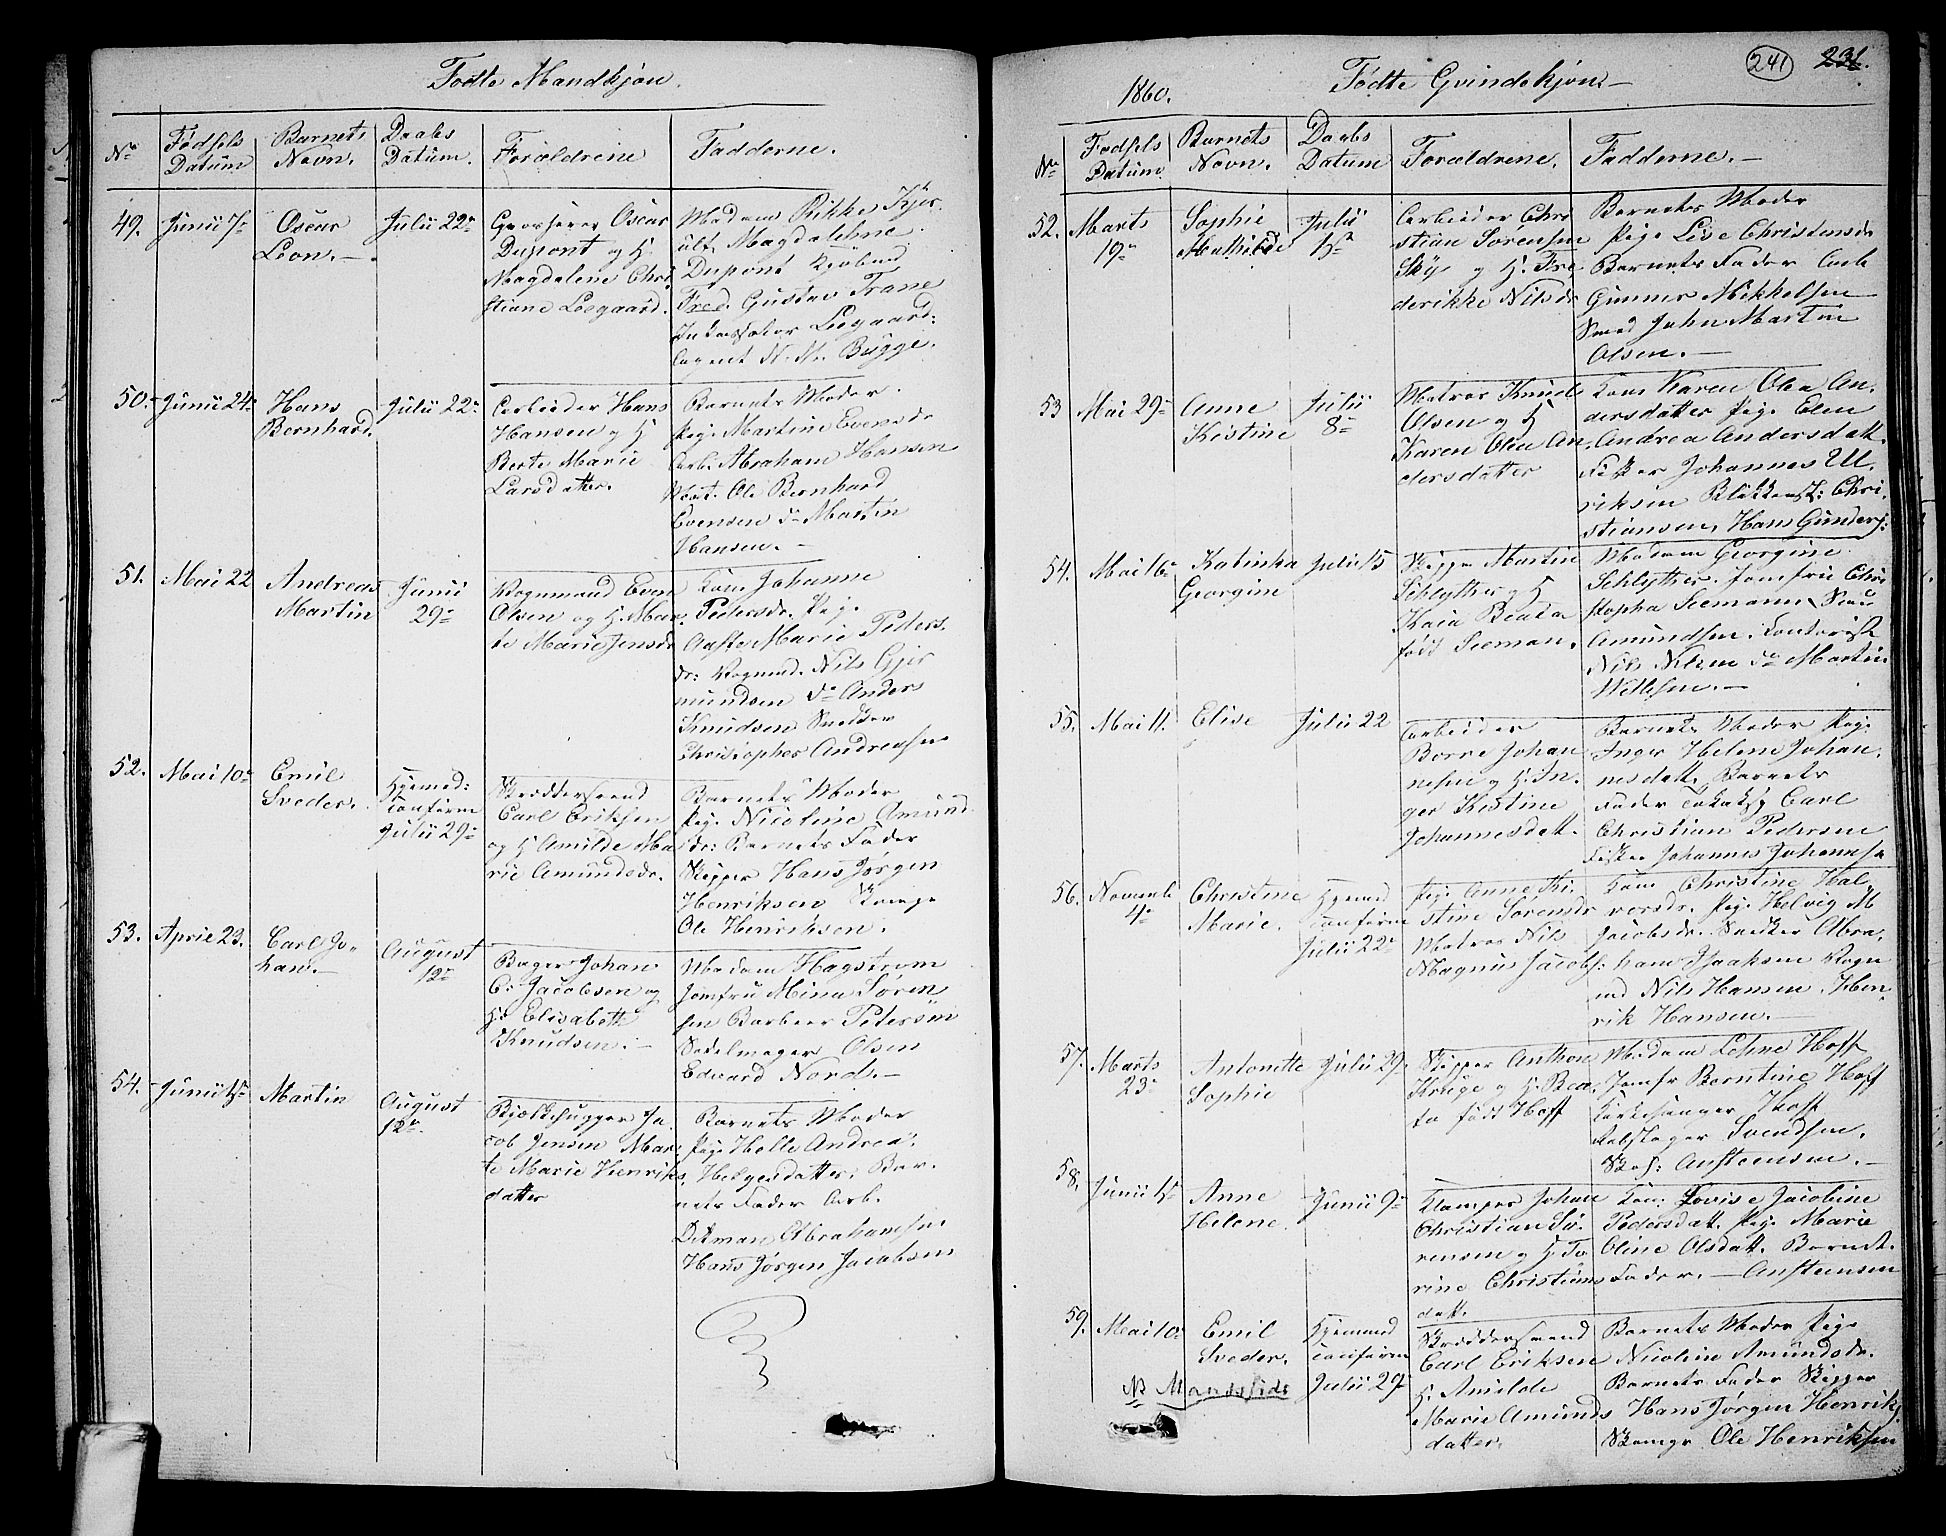 Fødte Mandkjøn.
No Fødsels Datum Barnets Navn. Daabs Datum. Forældrene Fadderne.
49. Junii 7de Oscar Leon.— Julii 22de
Grosserer Oscar
Dupont og H.
Magdalene Chri
stiane Leegaard.
Madam Rikke Kjer
ült. Magdalehne
Dupont Kjøbmd
Fred. Gustav Trane
Leegaard:
Agent N. N. Bugge.
50. Junii 24de Hans Bernhard. Julii 22de
Arbeider Hans
Hansen og H
Berte Marie
Larsdatter.
Barnets Moder.
Pige Martine Evensdr
Arb. Abraham Hansen
Mat. Ole Bernhard
Evensen do Martin
Hansen.—
51. Mai 22 Andreas Martin Junii 29de
Vognmand Even
Olsen og H. Mar
te Marie Jensdr
Kone Johanne
Pedersdr. Pige
Aaste Marie Peders
dr: Vognmd. Nils Gjer
mundsen do Anders
Knudsen Snedker
Christopher Andreasen
52. Mai 10de Emil Sveder. Hjemmed: Confirm Julii 29de
Skræddersvend
Carl Eriksen
og H Amilde Ma
rie Amundsdr.
Barnets Moder
Pige Nicoline Amund
sdr: Barnets Fader
Skipper Hans Jørgen
Henriksen Skomgr
Ole Henriksen.
53. April 23. Carl Jo-
han.— August 12te
Bager Johan
C: Jacobsen og
H: Elisabeth
Knudsen.—
Madam Hagstrøm
Jomfru Mina Søren
sen Barbeer Petersøn
Sadelmager Olsen
Edvard Nord.—
54. Junii 1ste Martin August 12te
Bjelkehugger Ja
cob Jensen Mar
te Marie Henriks
datter
Barnets Moder
Pige Helle Andrea
Helgesdatter. Bar
nets Fader Arb.
Ditman Abrahamsen
Hans Jørgen Jacobsen
241 231.
1860. Fødte Qvindekjøn—
No Fødsels Datum Barnets Navn. Daabs Datum Forældrene. Fadderne.—
52. Marts 19de Sophie Mathilde Julii 1ste
Arbeider Chri
stian Sørensen
Skye og H. Fre
derikke Nilsdr
Barnets Moder
Pige Lise Christensdr
Barnets Fader Arb
Gunner Mikkelsen
Smed John Martin
Olsen.—
53 Mai 29de Anne Kistine Julii 8de
Matros Knud
Olsen og H
Karen Olea An
dersdatter
Kone Karen Olea An
dersdatter Pige Elen
Andrea Andersdatt.
Fisker Johannes Ul
riksen Blikkensl: Chri
stiansen, Hans Gunders:
54. Mai 6te Katinka Georgine Julii 15
Skipper Martin
Schlytter og H
Kaia Beata
født Seeman.
Madam Georgine
Schlytter. Jomfru Chri
stopha Seemann
Amundsen. Contorist
Nils Nilsen do Martin
Willesen.—
55. Mai 11. Elise Julii 22
Arbeider
Borre Johan
nesen og H. In
ger Kistine
Johannesdatt.
Barnets Moder Pige
Inger Helene Johan
nesdatt. Barnets
Fader Carl
Christian Pedersen
Fisker Johannes Johannesen
56. Novemb 4de Christine Marie. Hjemmed Confirm Julii 22de
Pige Anne Ki
stine Sørensdr
Matros Nils
Magnus Jacobs:
Kone Christine Hal
vorsdr. Pige Helvig M
Jacobsdr. Snedker Abra
ham Isaaksen Vogn
md Nils Hansen. Hen
rik Hansen.—
57. Marts 23de Antonette Sophie Julii 29de
Skipper Anthon
Krüge og H. Bea
ta født Hoff
Madam Lehne Hoff
Jomfr Berntine Hoff
Kirkesanger Hoff
Rebslager Svendsen.
Skof: Anstensen.—
58. Junii 1ste Anne Helene. Junii 9de
Klamper Johan
Christian Sø
rensen og H. To
rine Christians
datt.
Kone: Lovise Jacobine
Pedersdatt. Pige Marie
Oline Olsdatt. Barnet.
Fader.— Anstensen
59. Mai 10de Emil Sveder. Hjemmed Confirm Julii 29de
NB Mandsside
Skræddersvend
Carl Eriksen
H. Amilde
Marie Amunds
datter.
Barnets Moder Pige
Nicoline Amundsdr.
Barnets Fader Skipper
Hans Jørgen Henriks
Skomgr Ole Henriksen